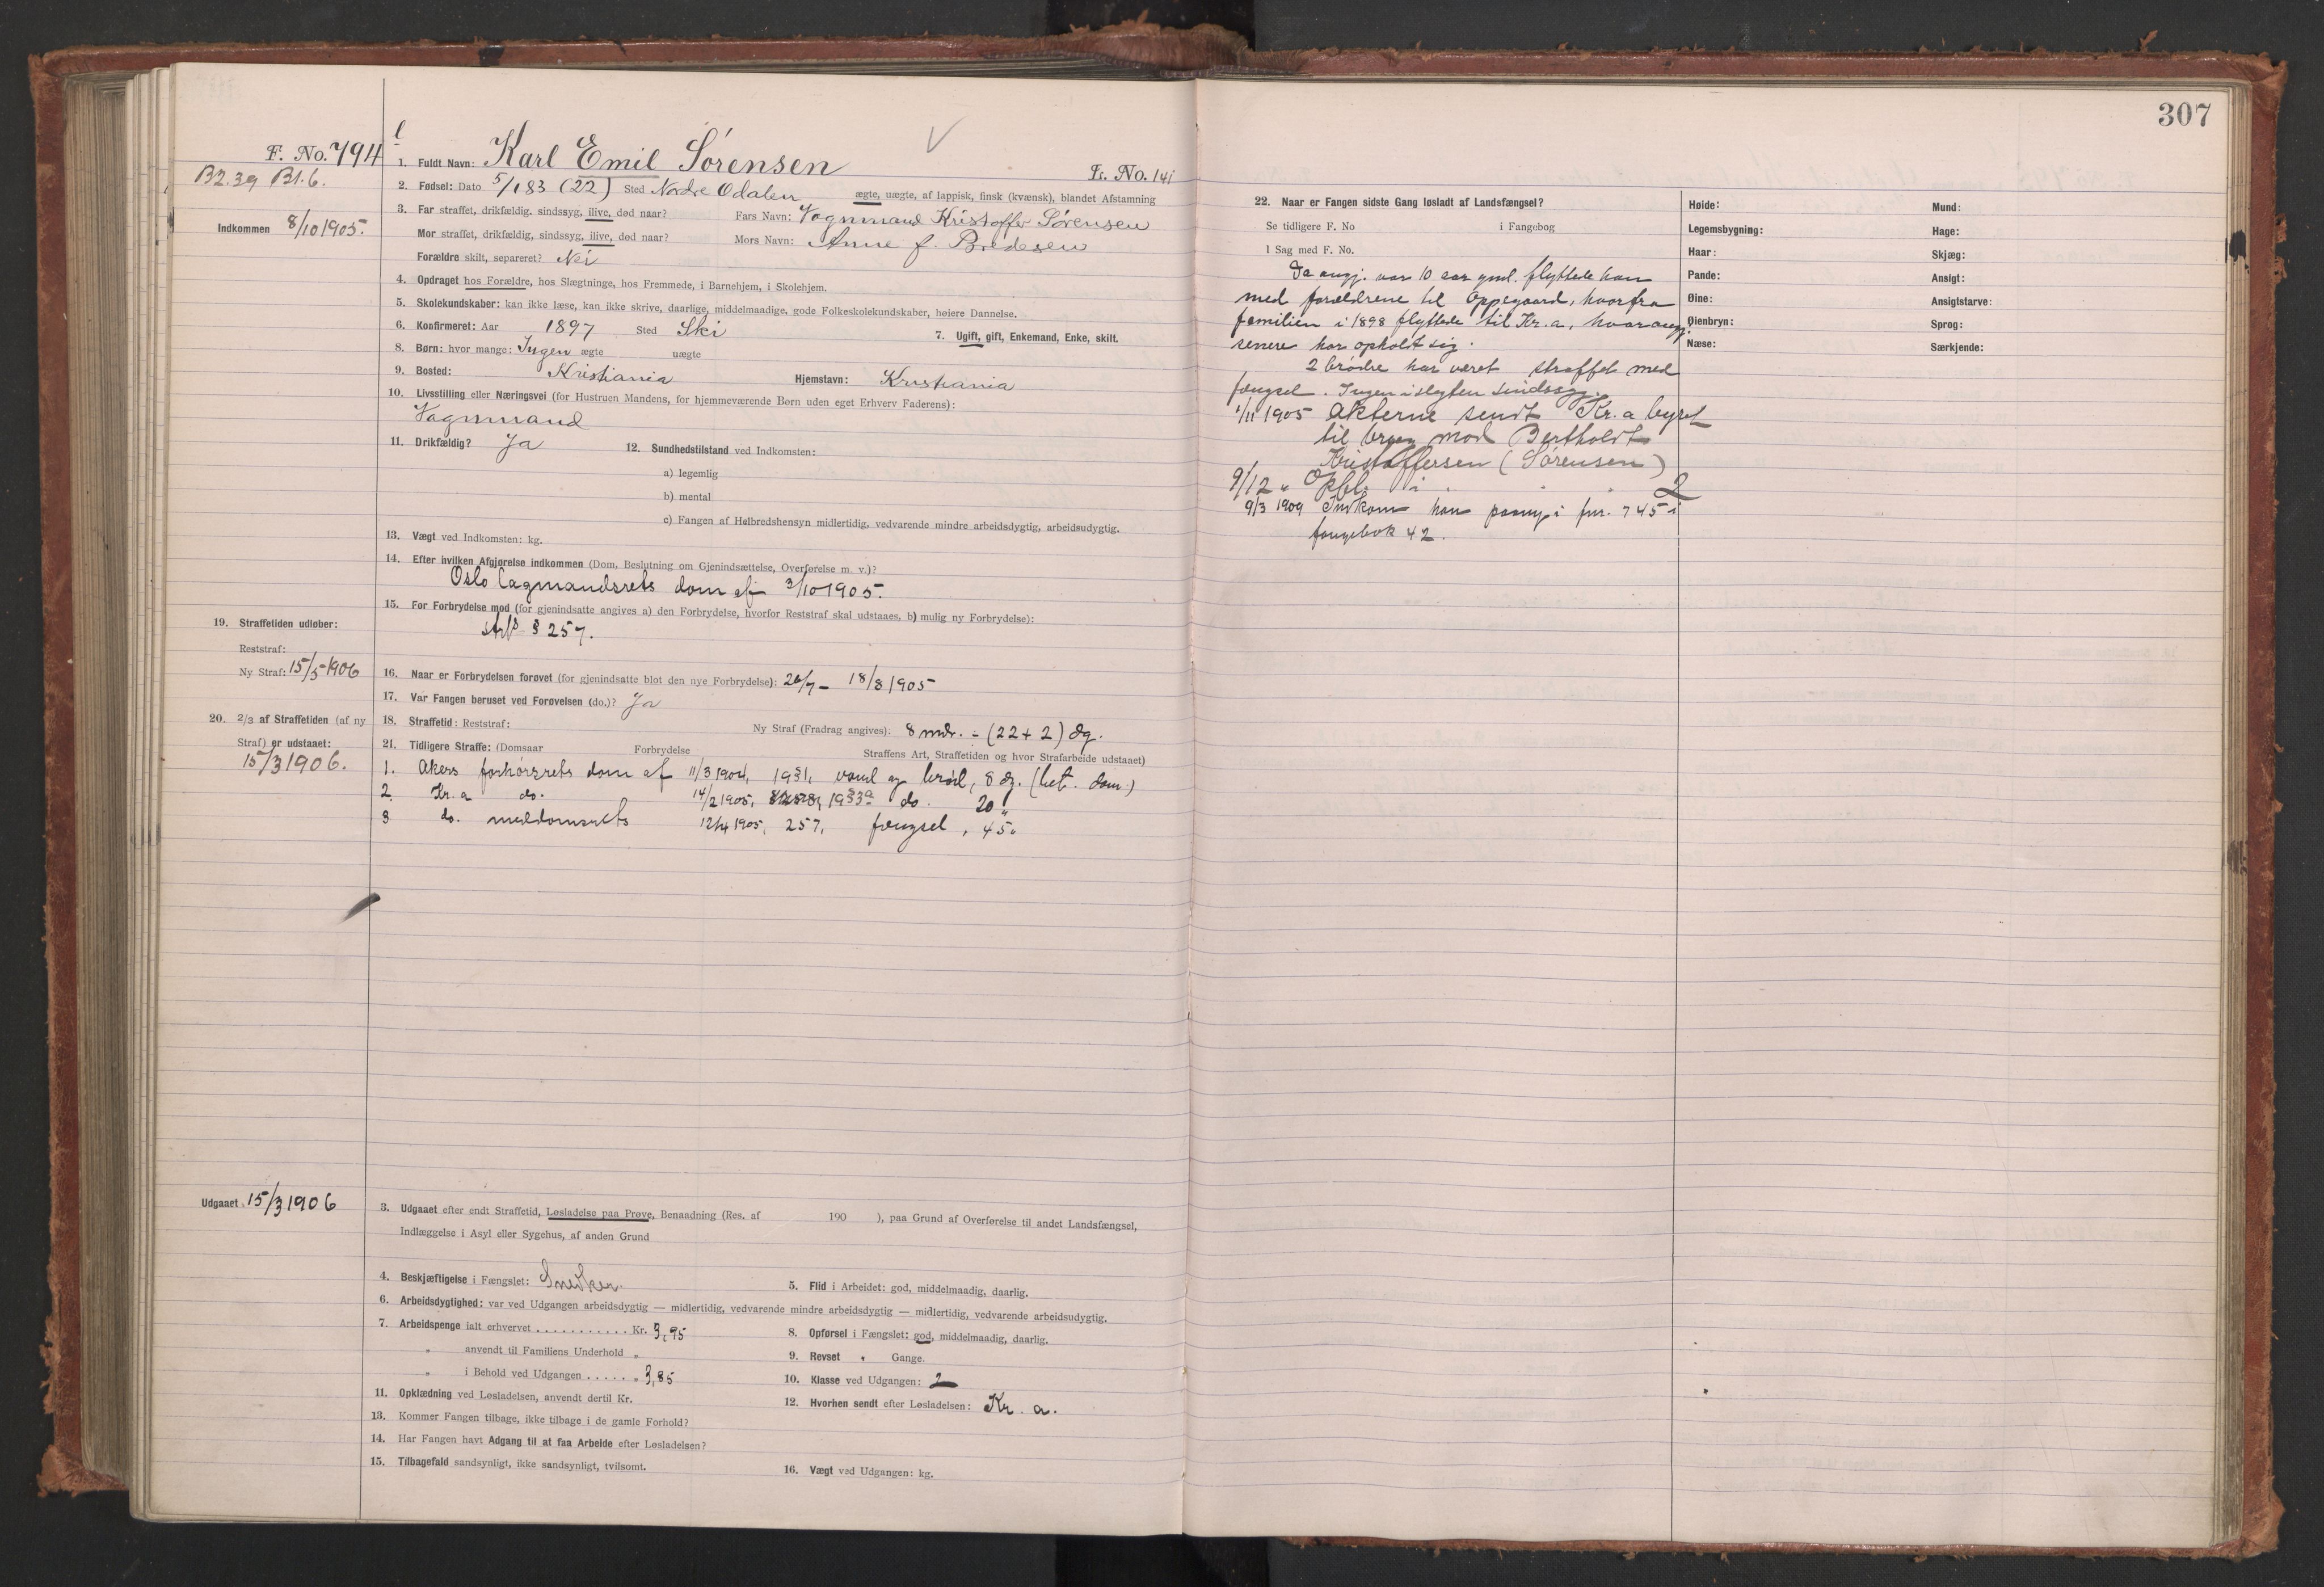 307
F. No. 794
B2.39 Bl.6.
Indkommen 8/10 1905.
1. Fuldt Navn: Karl Emil Sørensen
Fr. No. 141
2. Fødsel: Dato 5/1 83 (22) Sted Nordre Odalen ægte, uægte, af lappisk, finsk (kvænsk), blandet Afstamning
3. Far straffet, drikfældig. sindssyg, ilive, død naar? Fars Navn: Vognmand Kristoffer Sørensen
Mor straffet, drikfældig, sindssyg, ilive, død naar? Mors Navn: Anne f. Bredesen
Forældre skilt, separeret? Nei
4. Opdraget hos Forældre, hos Slægtninge, hos Fremmede, i Barnehjem, i Skolehjem.
5. Skolekundskaber: kan ikke læse, kan ikke skrive, daarlige, middelmaadige, gode Folkeskolekundskaber, høiere Dannelse.
6. Konfirmeret: Aar 1897 Sted Ski
7. Ugift, gift, Enkemand, Enke, skilt.
8. Børn: hvor mange: Ingen ægte uægte
9. Bosted: Kristiania Hjemstavn: Kristiania
10. Livsstilling eller Næringsvei (for Hustruen Mandens, for hjemmeværende Børn uden eget Erhverv Faderens):
Vognmand
11. Drikfældig? Ja
12. Sundhedstilstand ved Indkomsten:
a) legemlig
b) mental
c) Fangen af Helbredshensyn midlertidig, vedvarende mindre arbeidsdygtig, arbeidsudygtig.
13. Vægt ved Indkomsten: kg.
14. Efter hvilken Afgjørelse indkommen (Dom, Beslutning om Gjenindsættelse, Overførelse m. v.)?
Oslo lagmandsrets dom af 3/10 1905.
15. For Forbrydelse mod (for gjenindsatte angives a) den Forbrydelse, hvorfor Reststraf skal udstaaes, b) mulig ny Forbrydelse):
strfl § 257.
19. Straffetiden udløber:
Reststraf:
Ny Straf: 15/5 1906
16. Naar er Forbrydelsen forøvet (for gjenindsatte blot den nye Forbrydelse): 26/7 – 18/8 1905
17. Var Fangen beruset ved Forøvelsen (do.)? Ja
20. 2/3 af Straffetiden (af ny
Straf) er udstaaet:
15/3 1906.
18. Straffetid: Reststraf: Ny Straf (Fradrag angives): 8 mdr. ÷ (22 + 2) dg.
21. Tidligere Straffe: (Domsaar Forbrydelse Straffens Art, Straffetiden og hvor Strafarbeide udstaaet)
1. Akers forhørsrets dom af 11/3 1904, vand og brød, 8 dg. (bet. dom)
2. Kr.a do. 14/2 1905, do. 20 "
3 do. meddomsrets 12/4 1905, 257, fængsel, 45 "
Udgaaet 15/3 1906
3. Udgaaet efter endt Straffetid, Løsladelse paa Prøve, Benaadning (Res. af 190 ), paa Grund af Overførelse til andet Landsfængsel,
Indlæggelse i Asyl eller Sygehus, af anden Grund
4. Beskjæftigelse i Fængslet: Snedker
5. Flid i Arbeidet: god, middelmaadig, daarlig.
6. Arbeidsdygtighed: var ved Udgangen arbeidsdygtig — midlertidig, vedvarende mindre arbeidsdygtig — midlertidig, vedvarende arbeidsudygtig.
7. Arbeidspenge ialt erhvervet ........... Kr. 3,95
8. Opførsel i Fængslet: god, middelmaadig, daarlig.
" anvendt til Familiens Underhold "
9. Revset " Gange.
" i Behold ved Udgangen ...... " 3,85
10. Klasse ved Udgangen: 2
11. Opklædning ved Løsladelsen, anvendt dertil Kr.
12. Hvorhen sendt efter Løsladelsen: Kr. a.
13. Kommer Fangen tilbage, ikke tilbage i de gamle Forhold?
14. Har Fangen havt Adgang til at faa Arbeide efter Løsladelsen?
15. Tilbagefald sandsynligt, ikke sandsynligt, tvilsomt.
16. Vægt ved Udgangen: kg.
22. Naar er Fangen sidste Gang løsladt af Landsfængsel?
Se tidligere F. No i Fangebog
I Sag med F. No.
Da angj. var 10 aar gml. flyttede han
med forældrene til Oppegaard, hvorfra
familien i 1898 flyttede til Kr.a, hvor angj.
senere har opholdt sig.
2 brødre har været straffet med
fængsel. Ingen i slegten sindssyg.
1/11 1905 Akterne sendt Kr.a byret
til brug mod Berthold
Kristoffersen (Sørensen)
9/12 " Opfl. i 2
9/3 1909 Indkom han paany i fnr. 745 i
fangebok 42.
Høide:
Legemsbygning:
Haar:
Pande:
Øine:
Øienbryn:
Næse:
Mund:
Hage:
Skjæg:
Ansigt:
Ansigtstarve:
Sprog:
Særkjende: